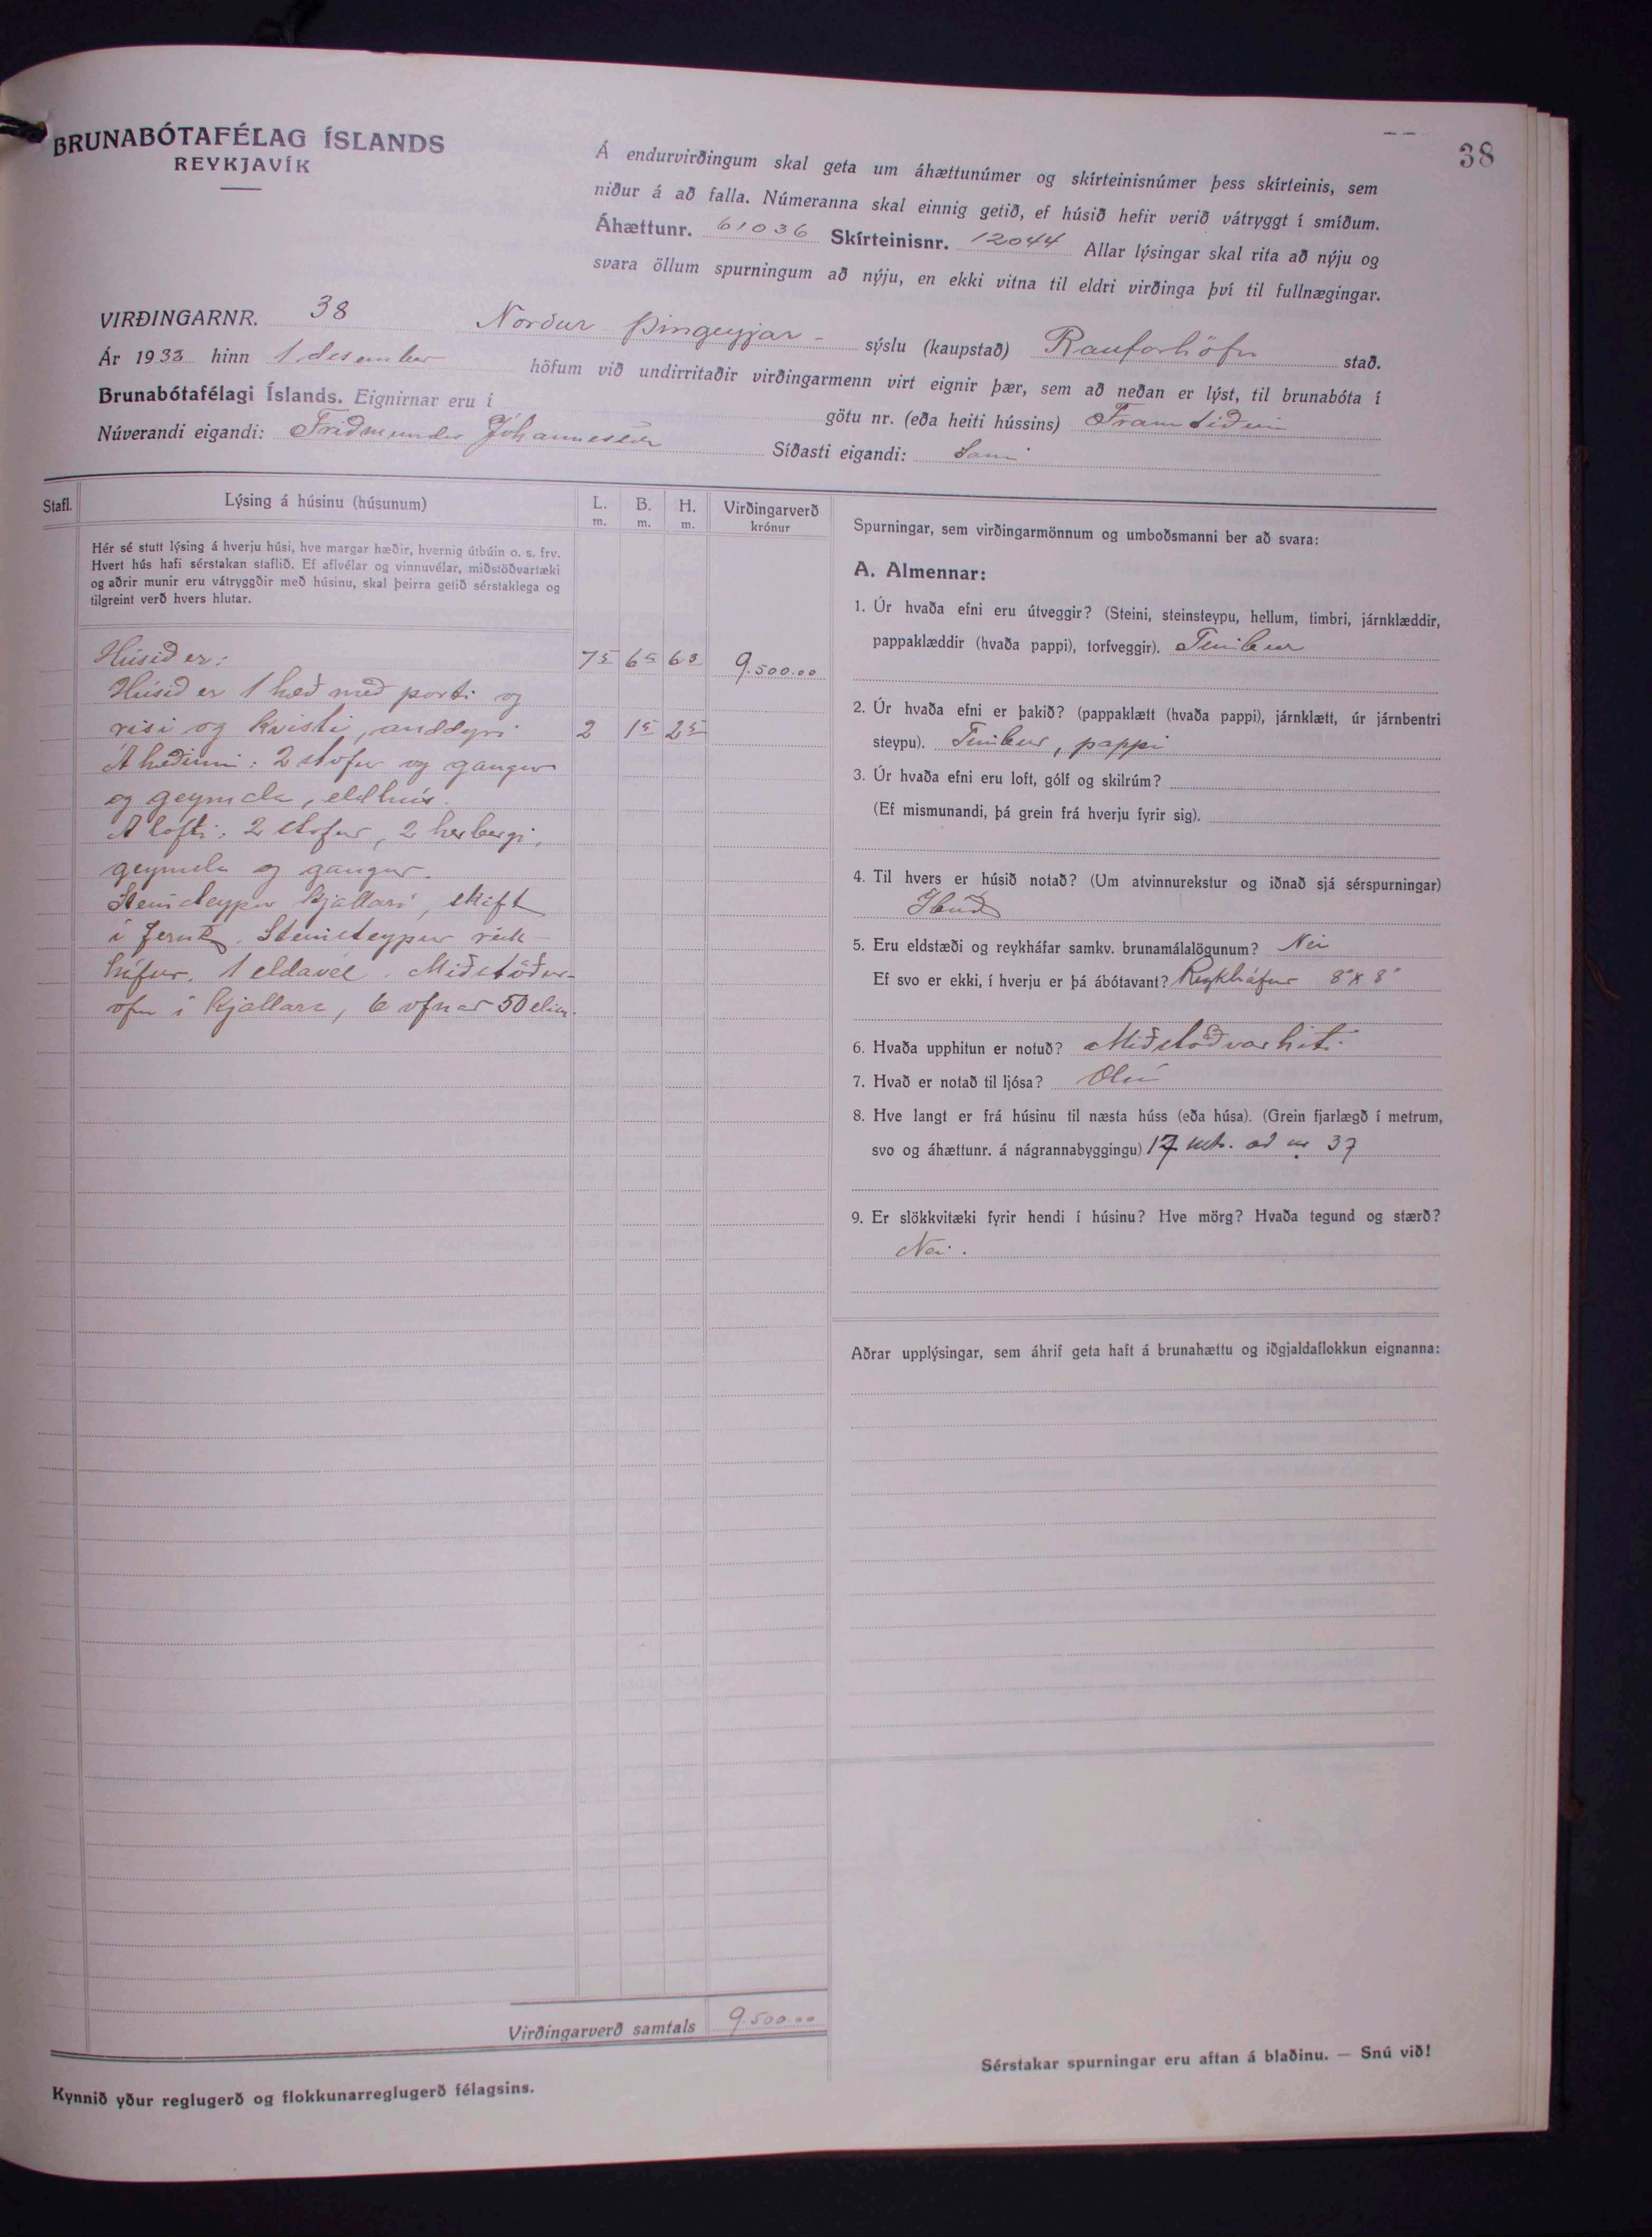 38
BRUNABÓTAFÉLAG ÍSLANDS
REYKJAVÍK
Á endurvirðingum skal geta um áhættunúmer og skírteinisnúmer þess skírteinis, sem
niður á að falla. Númeranna skal einnig getið, ef húsið hefir verið vátryggt í smíðum.
Áhættunr. 61036 Skírteinisnr. 12044 Allar lýsingar skal rita að nýju og
svara öllum spurningum að nýju, en ekki vitna til eldri virðinga því til fullnægingar.
VIRÐINGARNR. 38 Norður Þingeyjar- sýslu (kaupstað) Raufarhöfn stað.
Ár 1933 hinn 1 desember höfum við undirritaðir virðingarmenn virt eignir þær, sem að neðan er lýst, til brunabóta í
Brunabótafélagi Íslands. Eignirnar eru í götu nr. (eða heiti hússins) Framtíðin
Núverandi eigandi: Friðmundur Jóhannesson Síðasti eigandi: Sami
Stafl. Lýsing á húsinu (húsunum) L. m. B. m. H. m. Virðingarverð krónur
Hér sé stutt lýsing á hverju húsi, hve margar hæðir, hvernig útbúin o. s. frv.
Hvert hús hafi sérstakan staflið. Ef aflvélar og vinnuvélar, miðstöðvartæki
og aðrir munir eru vátryggðir með húsinu, skal þeirra getið sérstaklega og
tilgreint verð hvers hlutar.
Húsið er: 9.500.00
Húsið er 1 hæð með porti og
risi og kvisti, anddyri 2 1⁵ 2⁵
Á hæðinni: 2 stofur og gangur
og geymsla, eldhús.
Á lofti: 2 stofur, 2 herbergi,
geymsla og gangur.
Steinsteypur kjallari, skift
í fernt. Steinsteypur reik-
háfur. 1 eldavél. Miðstöðvar-
ofn í kjallara, 6 ofnar 50 elim.
Virðingarverð samtals 9.500.00
Kynnið yður reglugerð og flokkunarreglugerð félagsins.
Spurningar, sem virðingarmönnum og umboðsmanni ber að svara:
A. Almennar:
1. Úr hvaða efni eru útveggir? (Steini, steinsteypu, hellum, timbri, járnklæddir,
pappaklæddir (hvaða pappi), torfveggir). Timbur
2. Úr hvaða efni er þakið? (pappaklætt (hvaða pappi), járnklætt, úr járnbentri
steypu). Timbur, pappi
3. Úr hvaða efni eru loft, gólf og skilrúm?
(Ef mismunandi, þá grein frá hverju fyrir sig).
4. Til hvers er húsið notað? (Um atvinnurekstur og iðnað sjá sérspurningar)
Íbúð
5. Eru eldstæði og reykháfar samkv. brunamálalögunum? Nei
Ef svo er ekki, í hverju er þá ábótavant? Reykháfur 8" x 8"
6. Hvaða upphitun er notuð? Miðstöðvarhiti
7. Hvað er notað til ljósa? Olía
8. Hve langt er frá húsinu til næsta húss (eða húsa). (Grein fjarlægð í metrum,
svo og áhættunr. á nágrannabyggingu) 17 mtr. að nr 37
9. Er slökkvitæki fyrir hendi í húsinu? Hve mörg? Hvaða tegund og stærð?
Nei.
Aðrar upplýsingar, sem áhrif geta haft á brunahættu og iðgjaldaflokkun eignanna:
Sérstakar spurningar eru aftan á blaðinu. — Snú við!